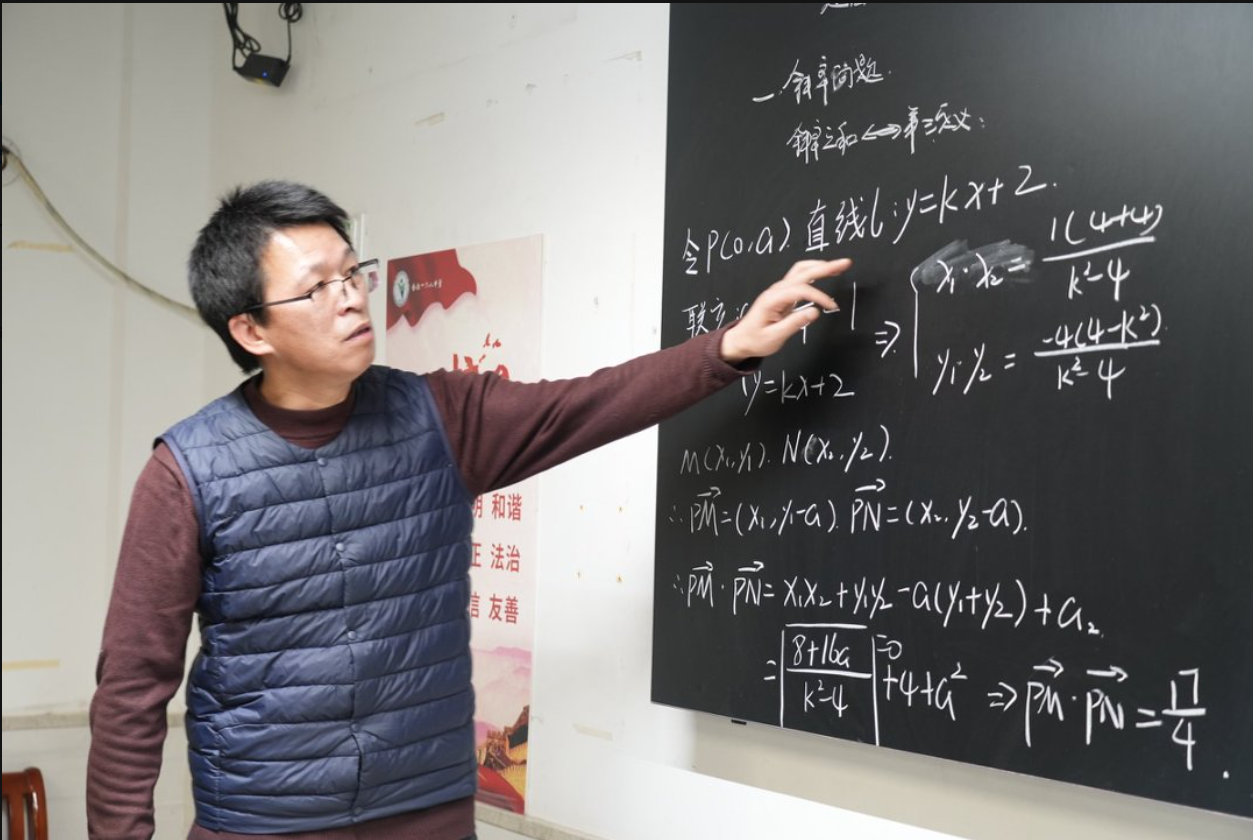 一.斜率问题.
斜率之和⟺第三定义:
令P(0,a).直线l:y=kx+2.
x₁·x₂=1(4+4)/k²-4
联立
⇒
y₁·y₂=-4(4-k²)/k²-4
y=kx+2
M(x₁,y₁).N(x₂,y₂).
∴PM→=(x₁,y₁-a).PN→=(x₂,y₂-a).
∴PM→·PN→=x₁x₂+y₁y₂-a(y₁+y₂)+a₂
=|8+16a/k²-4|=0+4+a²⇒PM→·PN→=17/4.
和谐
法治
友善